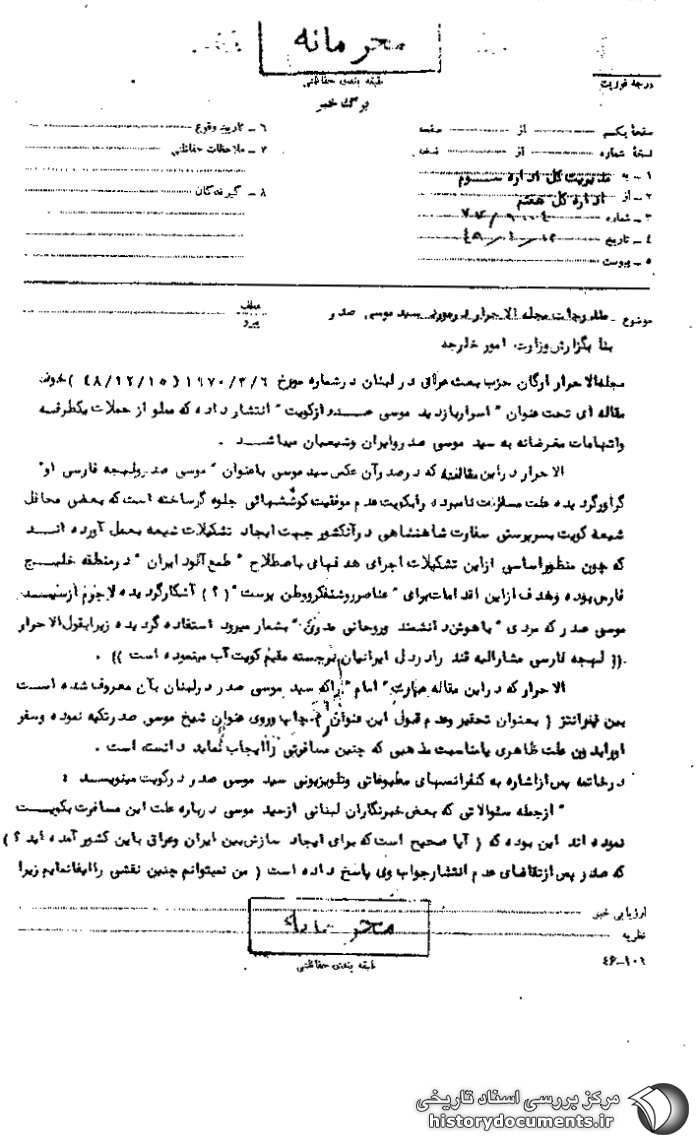 محرمانه
طبقه بندی حفاظتی
درجه فوریت
برگ خبر
صفحهٔ یکم از صفحه
نسخهٔ شماره از نسخه
۱ - به مدیریت کل اداره سوم
۲ - از اداره کل هفتم
۳ - شماره
۴ - تاریخ
۵ - پیوست
۶ - تاریخ وقوع
۷ - ملاحظات حفاظتی
۸ - گیرندگان
موضوع مندرجات مجله الاحرار درمورد سید موسی صدر
عطف
پیرو
بنا بگزارش وزارت امور خارجه
مجله الاحرار ارگان حزب بعث عراق در لبنان در شماره مورخ ۱۹۷۰/۳/۶ (۴۸/۱۲/۱۵) خود
مقاله ای تحت عنوان " اسرار بازدید موسی صدر از کویت " انتشار داده که مملو از حملات یکطرفه
واتهامات مغرضانه به سید موسی صدر وایران وشیعیان میباشد .
الاحرار دراین مقاله که درصدر آن عکس سید موسی باعنوان " موسی صدر ولهجه فارسی او"
گراور گردیده علت مسافرت نامبرده رابکویت عدم موفقیت کوششهائی جلوه گر ساخته است که بعضی محافل
شیعه کویت بسرپرستی سفارت شاهنشاهی درآنکشور جهت ایجاد تشکیلات شیعه بعمل آورده اند
که چون منظور اساسی ازاین تشکیلات اجرای هدفهای باصطلاح " طمع آلود ایران " درمنطقه خلیج
فارس بوده وهدف ازاین اقدامات برای " عناصر روشنفکر ووطن پرست " (؟) آشکار گردیده لاجرم از سید
موسی صدر که مردی " باهوش دانشمند وروحانی مدرن " بشمار میرود استفاده گردیده زیرا بقول الاحرار
(( لهجه فارسی مشارالیه قند رادر دل ایرانیان برجسته مقیم کویت آب مینموده است )) .
الاحرار که دراین مقاله عبارت " امام " راکه سید موسی صدر درلبنان بآن معروف شده است
بین گیومه بعنوان تحقیر وعدم قبول این عنوان چاپ وروی عنوان شیخ موسی صدر تکیه نموده وسفر
اورا بدون علت ظاهری یامناسبت مذهبی که چنین مسافرتی راایجاب نماید دانسته است .
درخاتمه پس ازاشاره به کنفرانسهای مطبوعاتی وتلویزیونی سید موسی صدر درکویت مینویسد :
" ازجمله سئوالاتی که بعضی خبرنگاران لبنانی ازسید موسی درباره علت این مسافرت بکویت
نموده اند این بوده که ( آیا صحیح است که برای ایجاد سازش بین ایران وعراق باین کشور آمده اید ؟ )
که صدر پس ازتقاضای عدم انتشار جواب وی پاسخ داده است ( من نمیتوانم چنین نقشی راایفانمایم زیرا
ارزیابی خبر
نظریه
محرمانه
طبقه بندی حفاظتی
۴۶-۱۰۱
مرکز بررسی اسناد تاریخی
historydocuments.ir